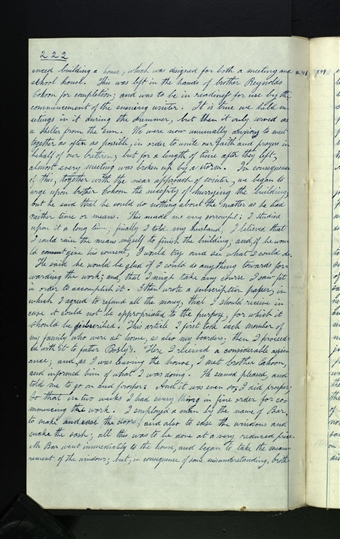 222
enced building a house, which was designed for both a meeting and
school house. This was left in the hands of brother Reynolds
Cahoon for completion; and was to be in readiness for use by the
commencement of the ensuing winter. It is true we held me-
etings in it during the summer, but then it only served as
a shelter from the sun. We were now unusually anxious to meet
together as often as possible, in order to unite our faith and prayers in
behalf of our bretren; but for a length of time after they left,
almost every meeting was broken up by a storm. In consequence
of this, together with the near approach of winter, we began to
urge upon brother Cahoon the necessity of hurrying the building;
but he said that he could do nothing about the matter as he had
neither time or means. This made me very sorrowful; I studied
upon it a long time; finally I told my husband, I believed that
I could raise the means myself to finish the building; and, if he wou-
ld give his consent, I would try and see what I could do.
He said he would be glad if I could do anything towards for-
warding the work; and, that I might take any course, I saw fit
in order to accomplish it. I then wrote a subscription paper, in
which I agreed to refund all the money, that I should receive in
case it could not be appropriated to the purpose, for which it
should be subscribed. This article I first took each member of
my family who were at home, as also my boarders; then I proceed-
ed with it to
Here I received a considerable assis-
ance; and, as I was leaving the house, I met brother Cahoon,
and informed him of what I was doing. He seemed pleased, and
told me to go on and prosper. And it was even so, I did prosper;
so that in two weeks I had every thing in fine order for com-
mencing the work. I employed a man by the name of Bar,
to make and case the doors, and also to case the windows and
make the sash; all this was to be done at a very reduced price.
Mr Bar went immediately to the house, and began to take the measu-
rement of the windows; but, in consequence of some misunderstanding, broth